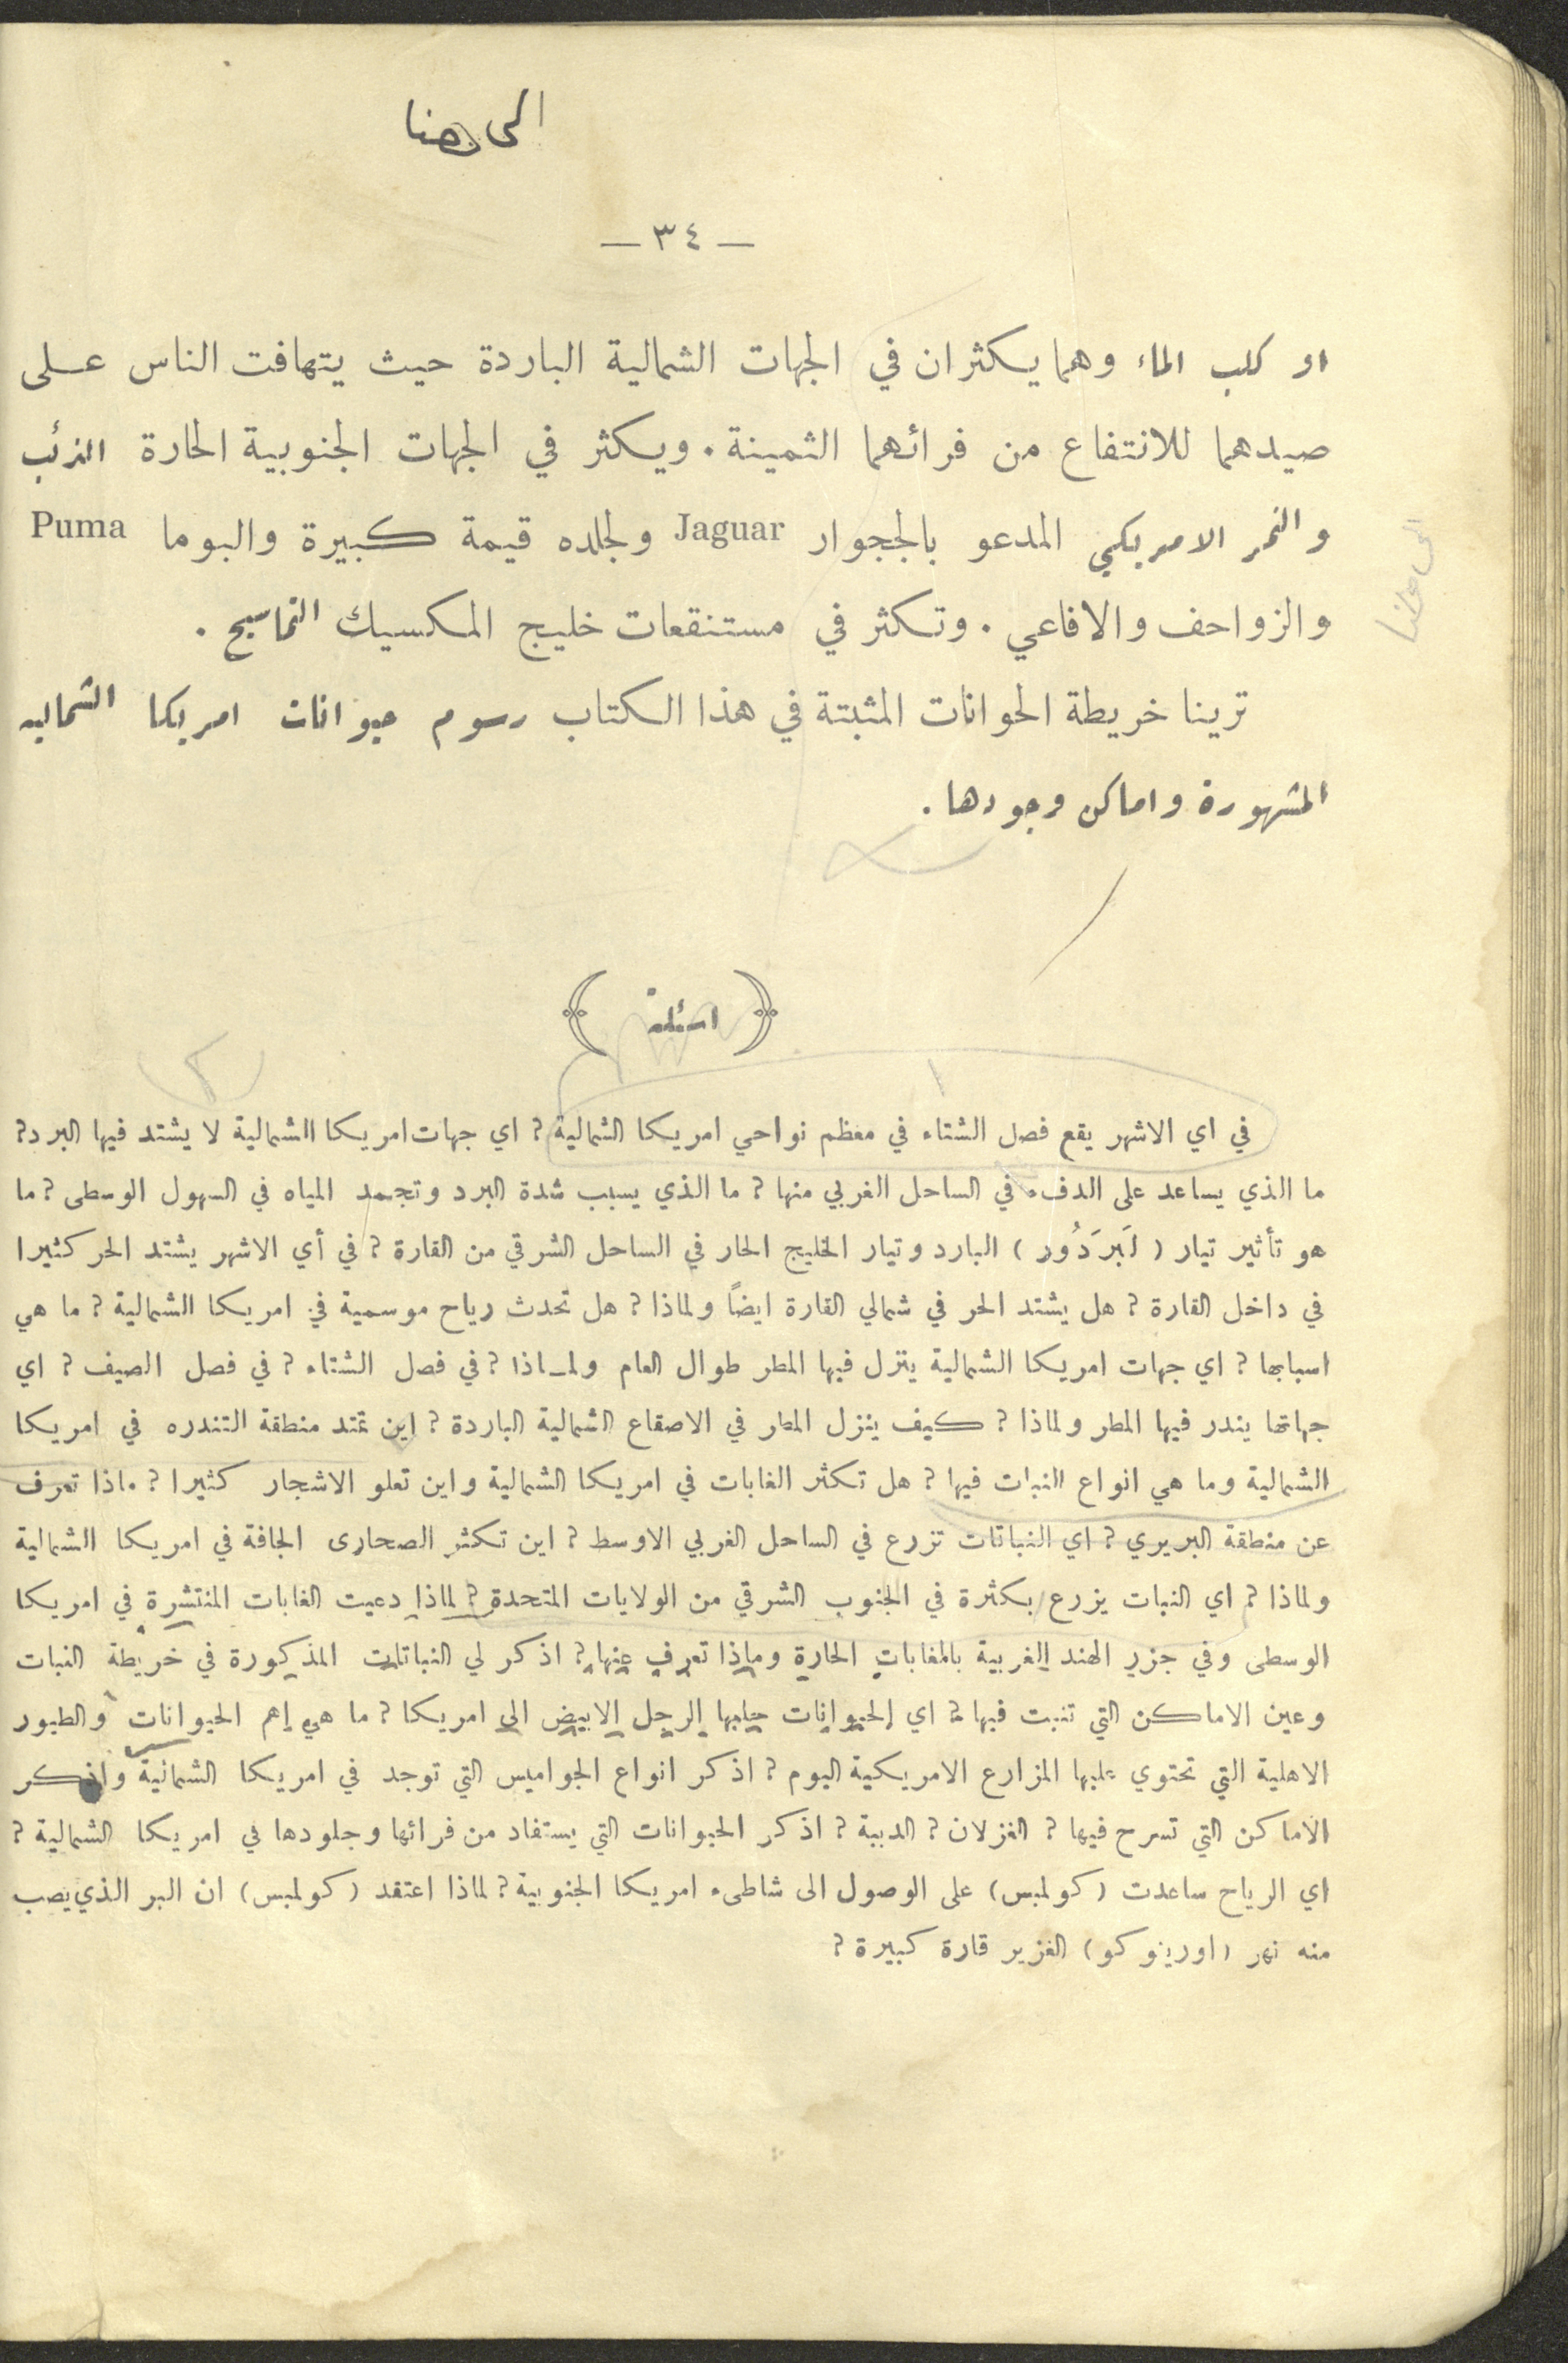 الى هنا
— ٣٤ —
او كلب الماء وهما يسكثران في الجهات الشمالية الباردة حيث يتهافت الناس عـلى
صيدهما للانتفاع من فرائهما الثمينة . ويكثر في الجهات الجنوبية الحارة الذئب
والنمر الامريكي المدعو بالججوار Jaguar ولجلده قيمة كبيرة والبوما Puma
والزواحف والافاعي . وتكثر في مستنقعات خليج المكسيك التماسيح .
الى هنا
ترينا خريطة الحوانات المثبتة في هذا الكتاب رسوم حيوانات امريكا الشمالية
المشهورة واماكن وجودها .
( اسئلة )
في اي الاشهر يقع فصل الشتاء في معظم نواحي امريكا الشمالية ? اي جهات امريكا الشمالية لا يشتد فيها البرد ?
ما الذي يساعد على الدفء في الساحل الغربي منها ? ما الذي يسبب شدة البرد وتجمد المياه في السهول الوسطى ? ما
هو تأثير تيار ( لَبرَدُور ) البارد وتيار الخليج الحار في الساحل الشرقي من القارة ? في أي الاشهر يشتد الحر كثيرا
في داخل القارة ? هل يشتد الحر في شمالي القارة ايضاً ولماذا ? هل تحدث رياح موسمية في امريكا الشمالية ? ما هي
اسبابها ? اي جهات امريكا الشمالية ينزل فيها المطر طوال العام ولمـاذا ? في فصل الشتاء ? في فصل الصيف ? اي
جهاتها يندر فيها المطر ولماذا ? كيف ينزل المطر في الاصقاع الشمالية الباردة ? اين تمتد منطقة التندره في امريكا
الشمالية وما هي انواع النبات فيها ? هل تكثر الغابات في امريكا الشمالية واين تعلو الاشجار كثيرا ? ماذا تعرف
عن منطقة البريري ? اي النباتات تزرع في الساحل الغربي الاوسط ? اين تكثر الصحارى الجافة في امريكا الشمالية
ولماذا ? اي النبات يزرع بكثرة في الجنوب الشرقي من الولايات المتحدة ? لماذا دعيت الغابات المنتشرة في امريكا
الوسطى وفي جزر الهند الغربية بالمغابات الحارة وماذا تعرف عنها ? اذكر لي النباتات المذكورة في خريطة النبات
وعين الاماكن التي تنبت فيها ? اي الحيوانات جلبها الرجل الابيض الى امريكا ? ما هي اهم الحيوانات والطيور
الاهلية التي تحتوي عليها المزارع الامريكية اليوم ? اذكر انواع الجواميس التي توجد في امريكا الشمالية واذكر
الاماكن التي تسرح فيها ? الغزلان ? الدببة ? اذكر الحيوانات التي يستفاد من فرائها وجلودها في امريكا الشمالية ?
اي الرياح ساعدت ( كولمبس ) على الوصول الى شاطىء امريكا الجنوبية ? لماذا اعتقد ( كولمبس ) ان البر الذي يصب
منه نهر ( اورينوكو ) الغزير قارة كبيرة ?